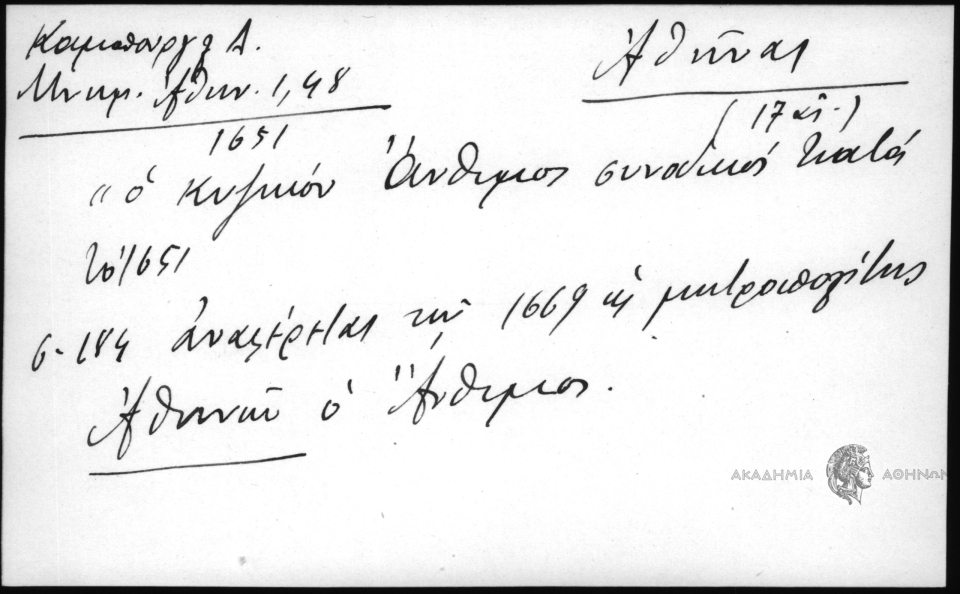 Καμπούρογλ Δ.
Μνημ. Ἀθην. 1, 48
Ἀθῆναι
1651
(17 αἰ.)
"ὁ Κυζικοῦ Ἄνθιμος συνοδικός κατά
τό 1651
σ. 184 ἀναφέρεται τῷ 1669 ὡς μητροπολίτης
Ἀθηνῶν ὁ Ἄνθιμος.
ΑΚΑΔΗΜΙΑ ΑΘΗΝΩΝ